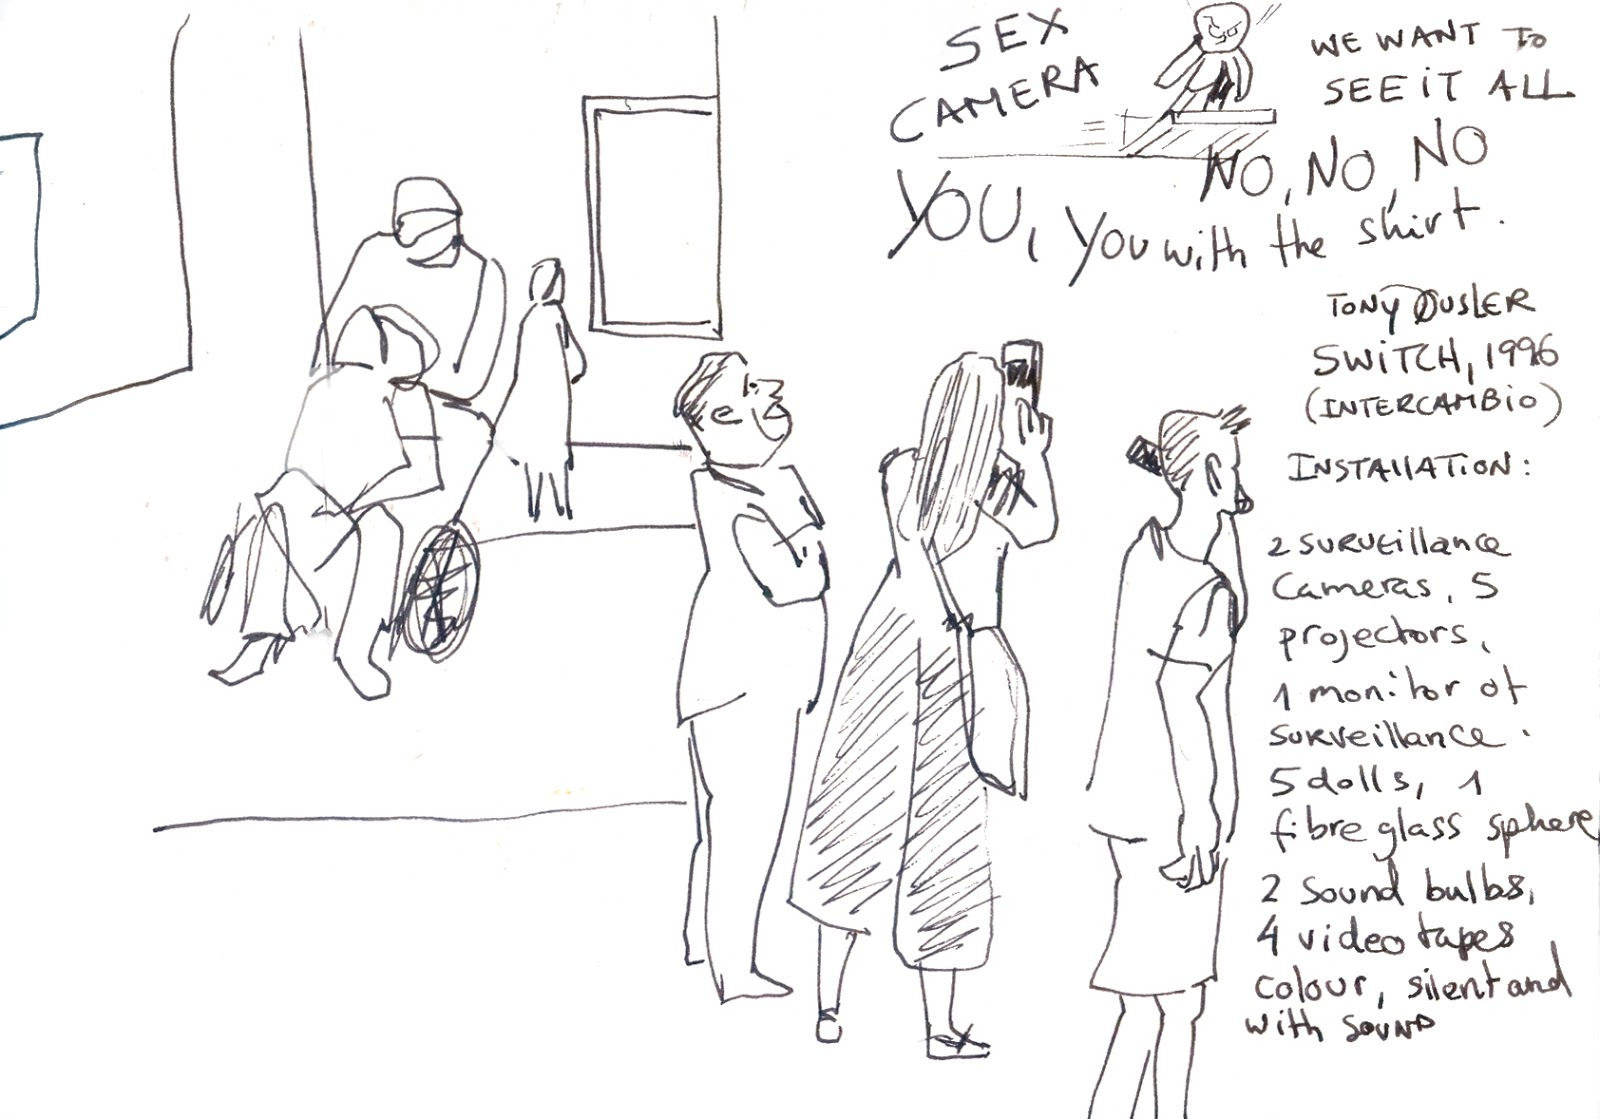 SEX
CAMERA
WE WANT TO
SEE IT ALL
NO, NO, NO
YOU, You with the shirt.
TONY OUSLER
SWITCH, 1996
(INTERCAMBIO)
INSTALLATION:
2 surveillance
cameras, 5
projectors,
1 monitor of
surveillance.
5 dolls, 1
fibreglass sphere
2 sound bulbs,
4 video tapes
colour, silent and
with sound